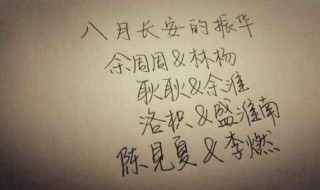 八月长安的振华
余周周&林杨
耿耿&余淮
洛枳&盛淮南
陈见夏&李燃